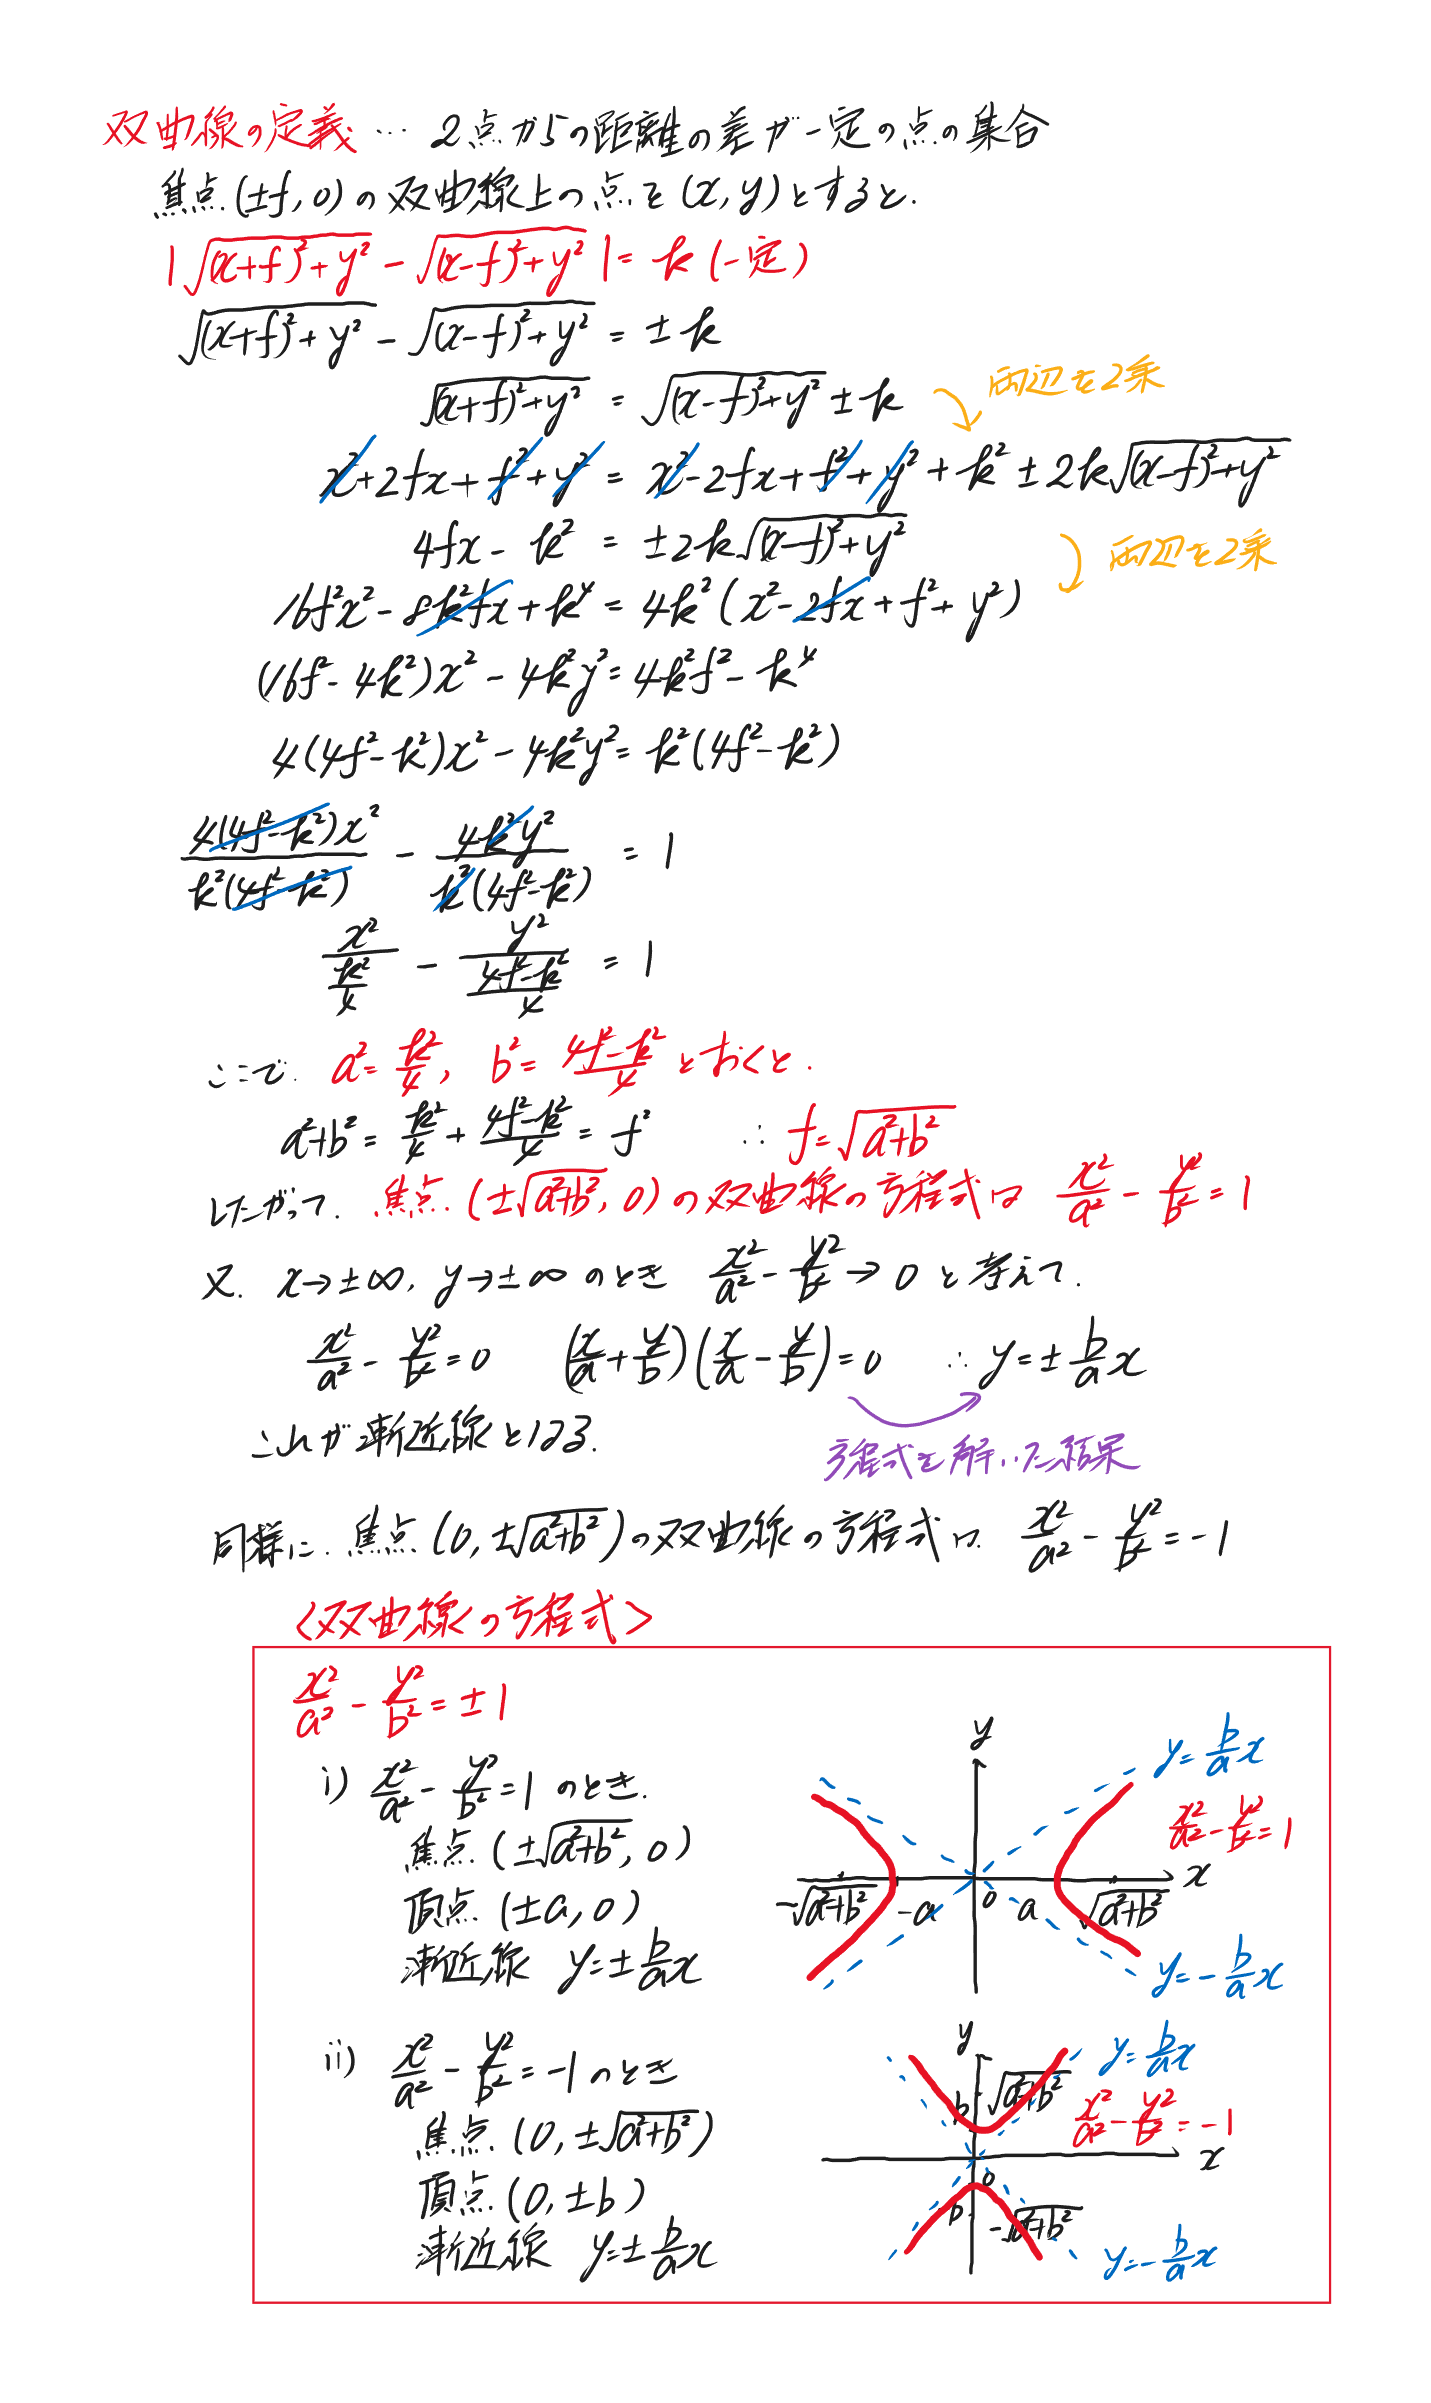 双曲線の定義 … 2点からの距離の差が一定の点の集合
焦点(±f, 0)の双曲線上の点を(x, y)とすると.
|√((x+f)²+y²) − √((x−f)²+y²)| = k (一定)
√((x+f)²+y²) − √((x−f)²+y²) = ±k
√((x+f)²+y²) = √((x−f)²+y²) ± k
両辺を2乗
x²+2fx+f²+y² = x²−2fx+f²+y²+k²±2k√((x−f)²+y²)
4fx − k² = ±2k√((x−f)²+y²)
両辺を2乗
16f²x² − 8k²fx + k⁴ = 4k²(x²−2fx+f²+y²)
(16f²−4k²)x² − 4k²y² = 4k²f² − k⁴
4(4f²−k²)x² − 4k²y² = k²(4f²−k²)
4(4f²−k²)x²/k²(4f²−k²) − 4k²y²/k²(4f²−k²) = 1
x²/(k²/4) − y²/((4f²−k²)/4) = 1
ここで. a² = k²/4, b² = (4f²−k²)/4 とおくと.
a²+b² = k²/4 + (4f²−k²)/4 = f² ∴ f = √(a²+b²)
したがって. 焦点(±√(a²+b²), 0)の双曲線の方程式は x²/a² − y²/b² = 1
又. x→±∞, y→±∞ のとき x²/a² − y²/b² → 0 と考えて.
x²/a² − y²/b² = 0 (x/a + y/b)(x/a − y/b) = 0 ∴ y = ±(b/a)x
これが漸近線となる.
方程式を解いた結果
同様に. 焦点(0, ±√(a²+b²))の双曲線の方程式は. x²/a² − y²/b² = −1
<双曲線の方程式>
x²/a² − y²/b² = ±1
i) x²/a² − y²/b² = 1 のとき.
焦点(±√(a²+b²), 0)
頂点(±a, 0)
漸近線 y = ±(b/a)x
y
y = (b/a)x
x²/a² − y²/b² = 1
x
−√(a²+b²) −a 0 a √(a²+b²)
y = −(b/a)x
ii) x²/a² − y²/b² = −1 のとき
焦点(0, ±√(a²+b²))
頂点(0, ±b)
漸近線 y = ±(b/a)x
y
y = (b/a)x
b √(a²+b²)
x²/a² − y²/b² = −1
x
0
b −√(a²+b²)
y = −(b/a)x